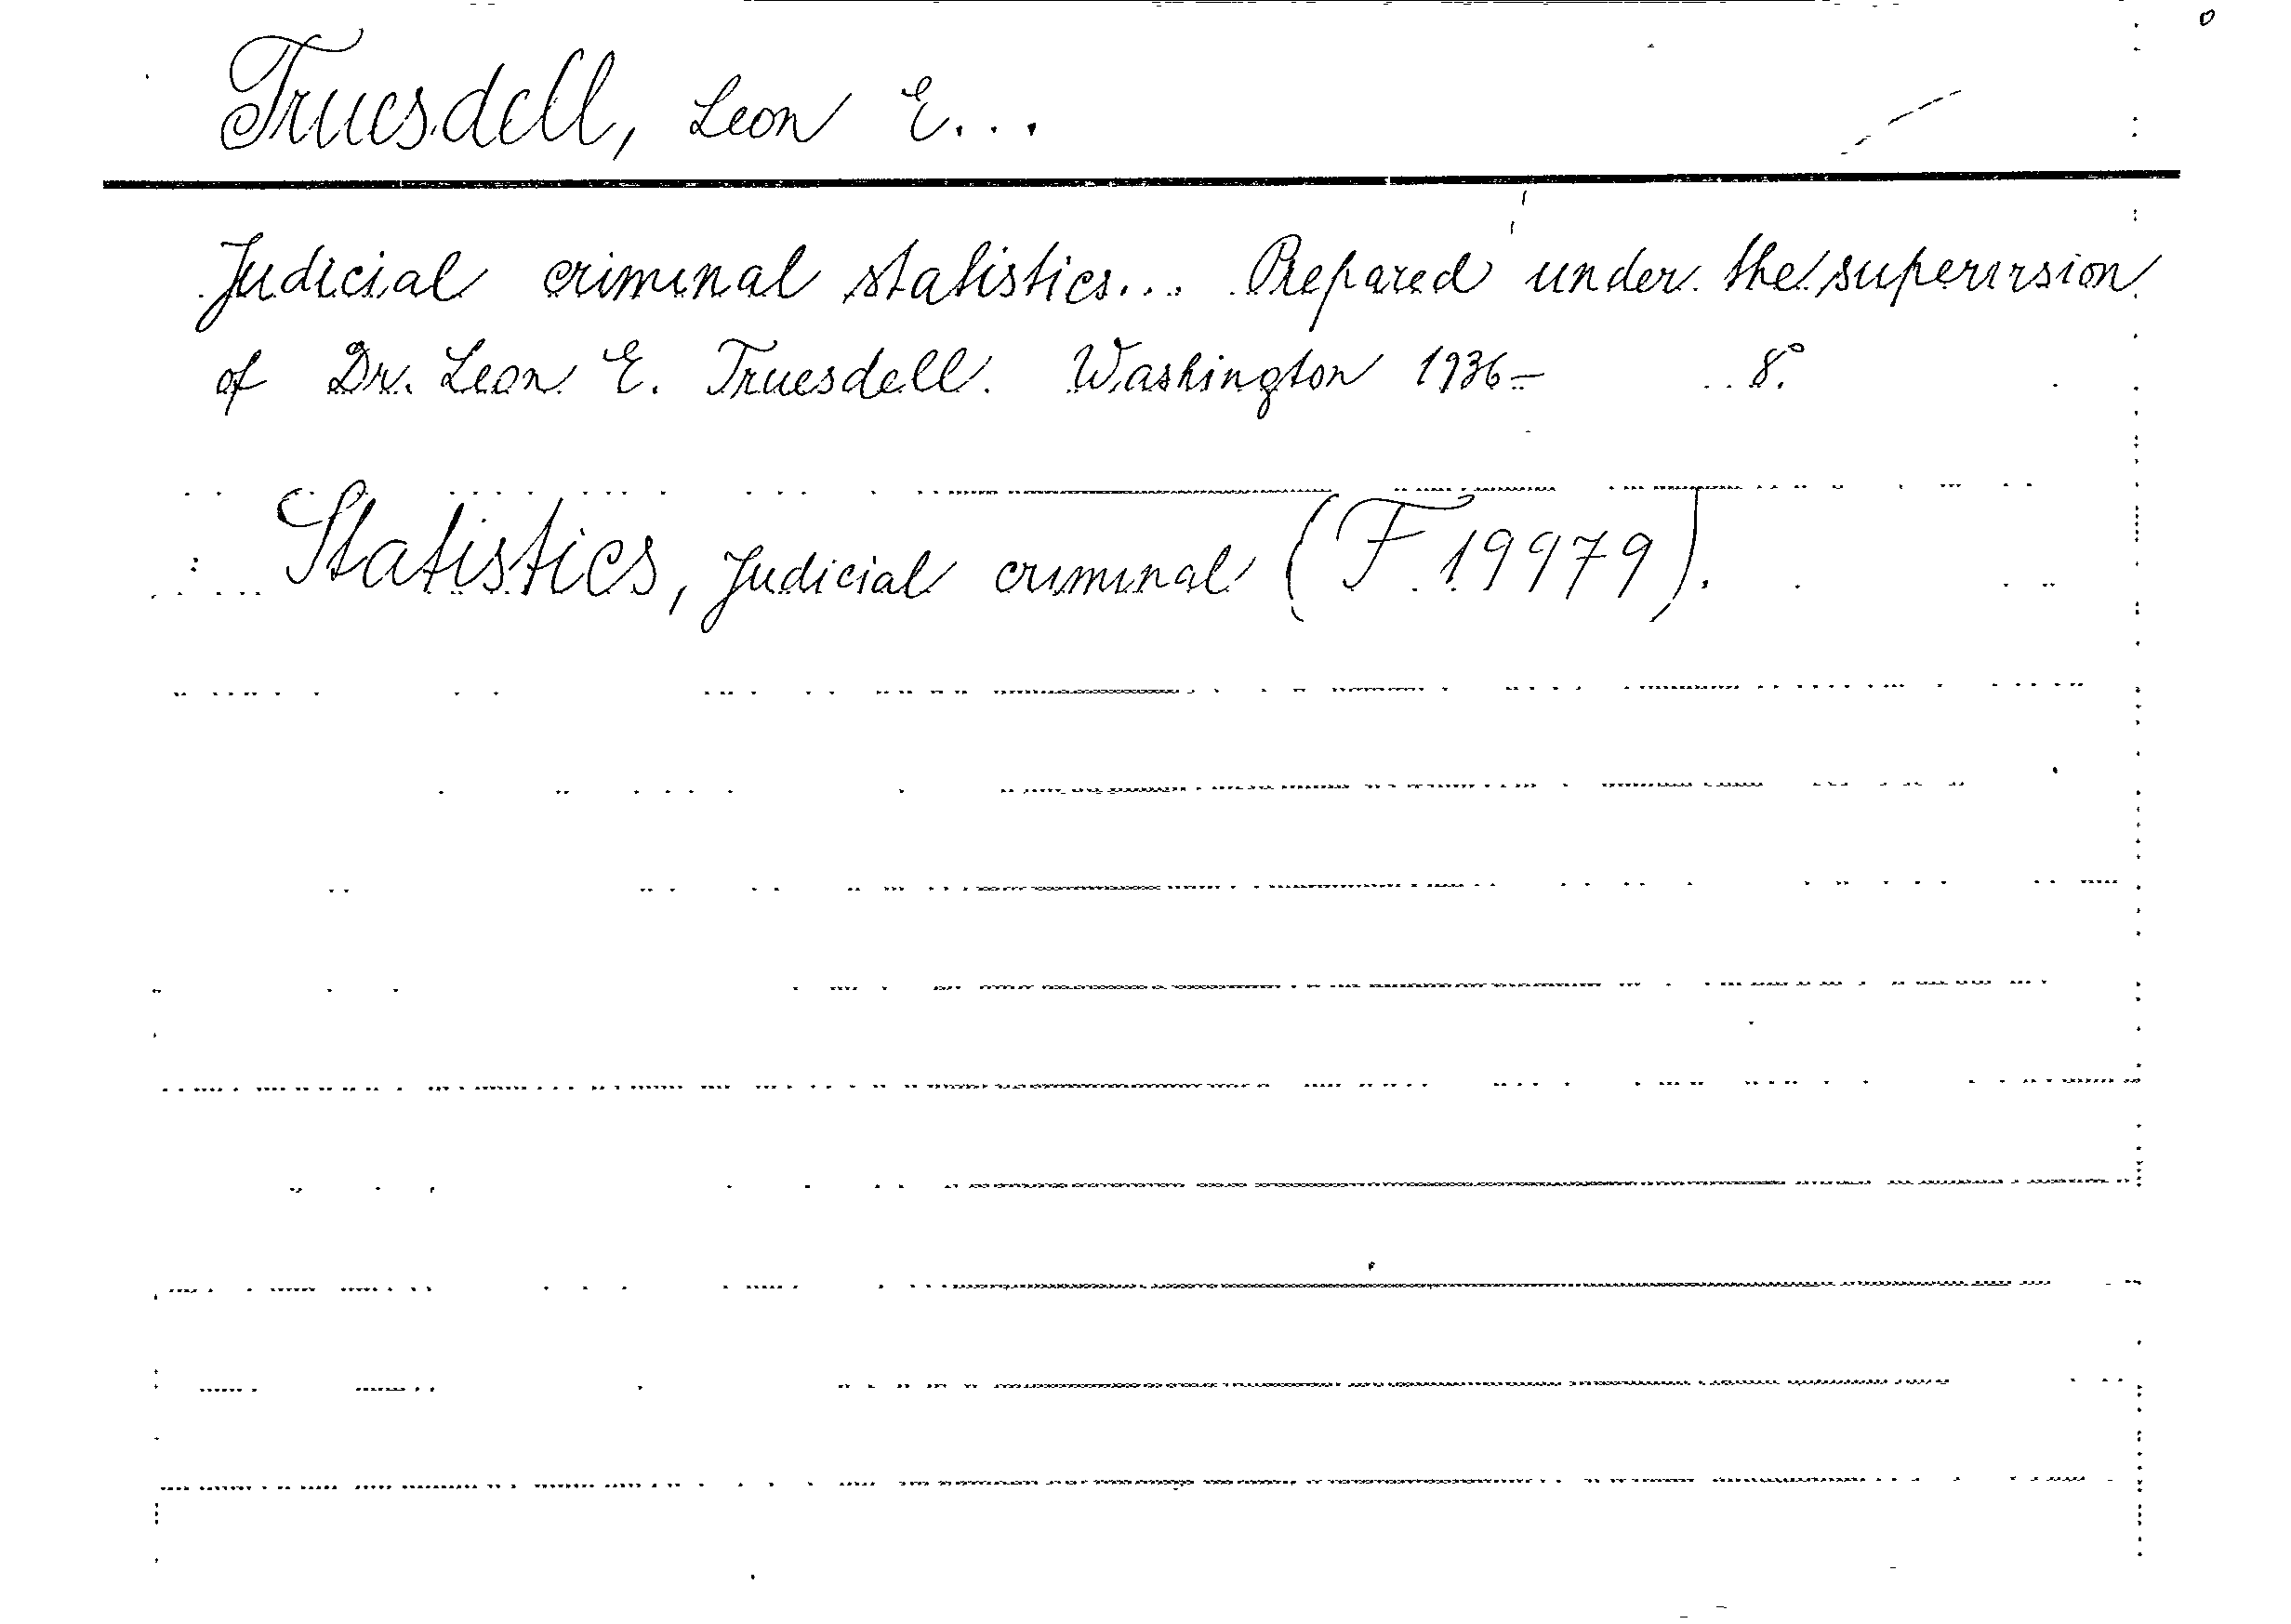 Truesdell, Leon E...
Judicial criminal statistics... Prepared under the supervision
of Dr. Leon E. Truesdell. Washington 1936- 8°.
Statistics, Judicial criminal (F 19979).